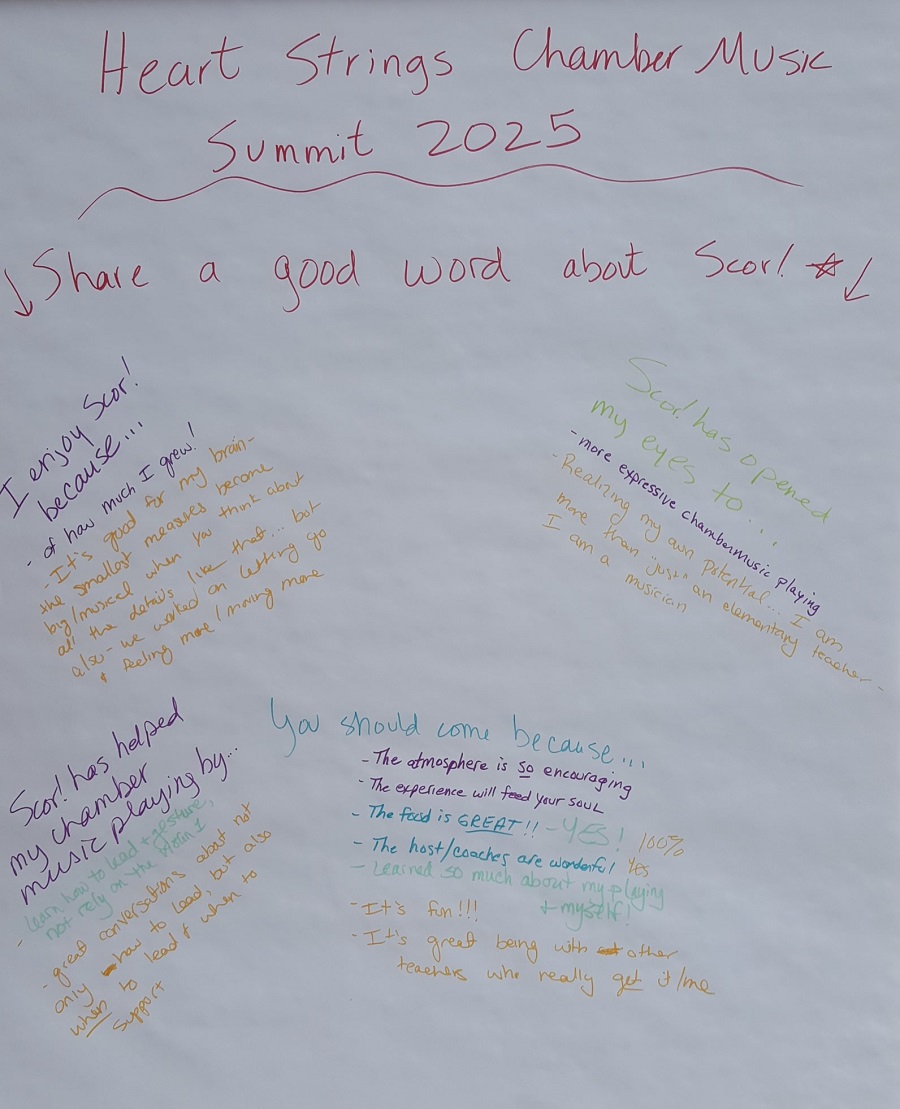 Heart Strings Chamber Music
Summit 2025
Share a good word about Scor!
I enjoy Scor!
because...
- of how much I grew!
- It's good for my brain -
the smallest measures become
big/musical when you think about
all the details like that... but
also - we worked on letting go
& feeling more / moving more
Scor! has opened
my eyes to...
- more expressive chambermusic playing
- Realizing my own potential... I am
more than "just" an elementary teacher -
I am a musician
Scor! has helped
my chamber
music playing by...
- learn how to lead + gesture,
not rely on the violin 1
- great conversations about not
only how to lead, but also
when to lead & when to
support
You should come because...
- The atmosphere is so encouraging
- The experience will feed your soul
- The food is GREAT!! - YES! 100%
- The host/coaches are wonderful Yes
- Learned so much about my playing
+ myself!
- It's fun!!!
- It's great being with other
teachers who really get it/me